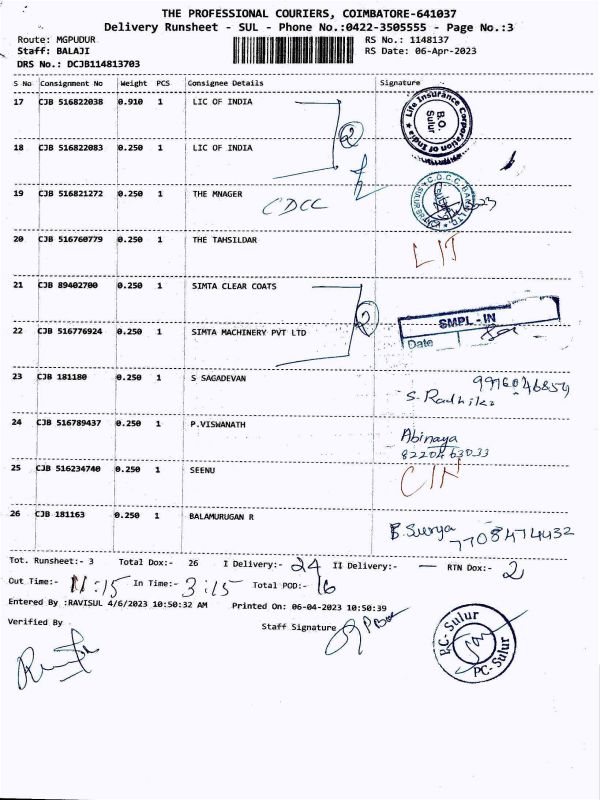 THE PROFESSIONAL COURIERS, COIMBATORE-641037
Delivery Runsheet - SUL - Phone No.:0422-3505555 - Page No.:3
Route: MGPUDUR RS No.: 1148137
Staff: BALAJI RS Date: 06-Apr-2023
DRS No.: DCJB114813703
S No Consignment No Weight PCS Consignee Details Signature
17 CJB 516822038 0.910 1 LIC OF INDIA
Life Insurance Corporation of India
B.O.
Sulur
2
18 CJB 516822083 0.250 1 LIC OF INDIA
19 CJB 516821272 0.250 1 THE MNAGER
CDCC
20 CJB 516760779 0.250 1 THE TAHSILDAR
21 CJB 89402700 0.250 1 SIMTA CLEAR COATS
2
SMPL - IN
Date
22 CJB 516776924 0.250 1 SIMTA MACHINERY PVT LTD
23 CJB 181180 0.250 1 S SAGADEVAN
9976046854
S. Radhika
24 CJB 516789437 0.250 1 P.VISWANATH
Abinaya
8220463033
25 CJB 516234740 0.250 1 SEENU
26 CJB 181163 0.250 1 BALAMURUGAN R
B. Surya
7708474432
Tot. Runsheet:- 3 Total Dox:- 26 I Delivery:- 24 II Delivery:- — RTN Dox:- 2
Out Time:- 11:15 In Time:- 3:15 Total POD:- 16
Entered By :RAVISUL 4/6/2023 10:50:32 AM Printed On: 06-04-2023 10:50:39
Verified By Staff Signature
P.C- Sulur
PC- Sulur